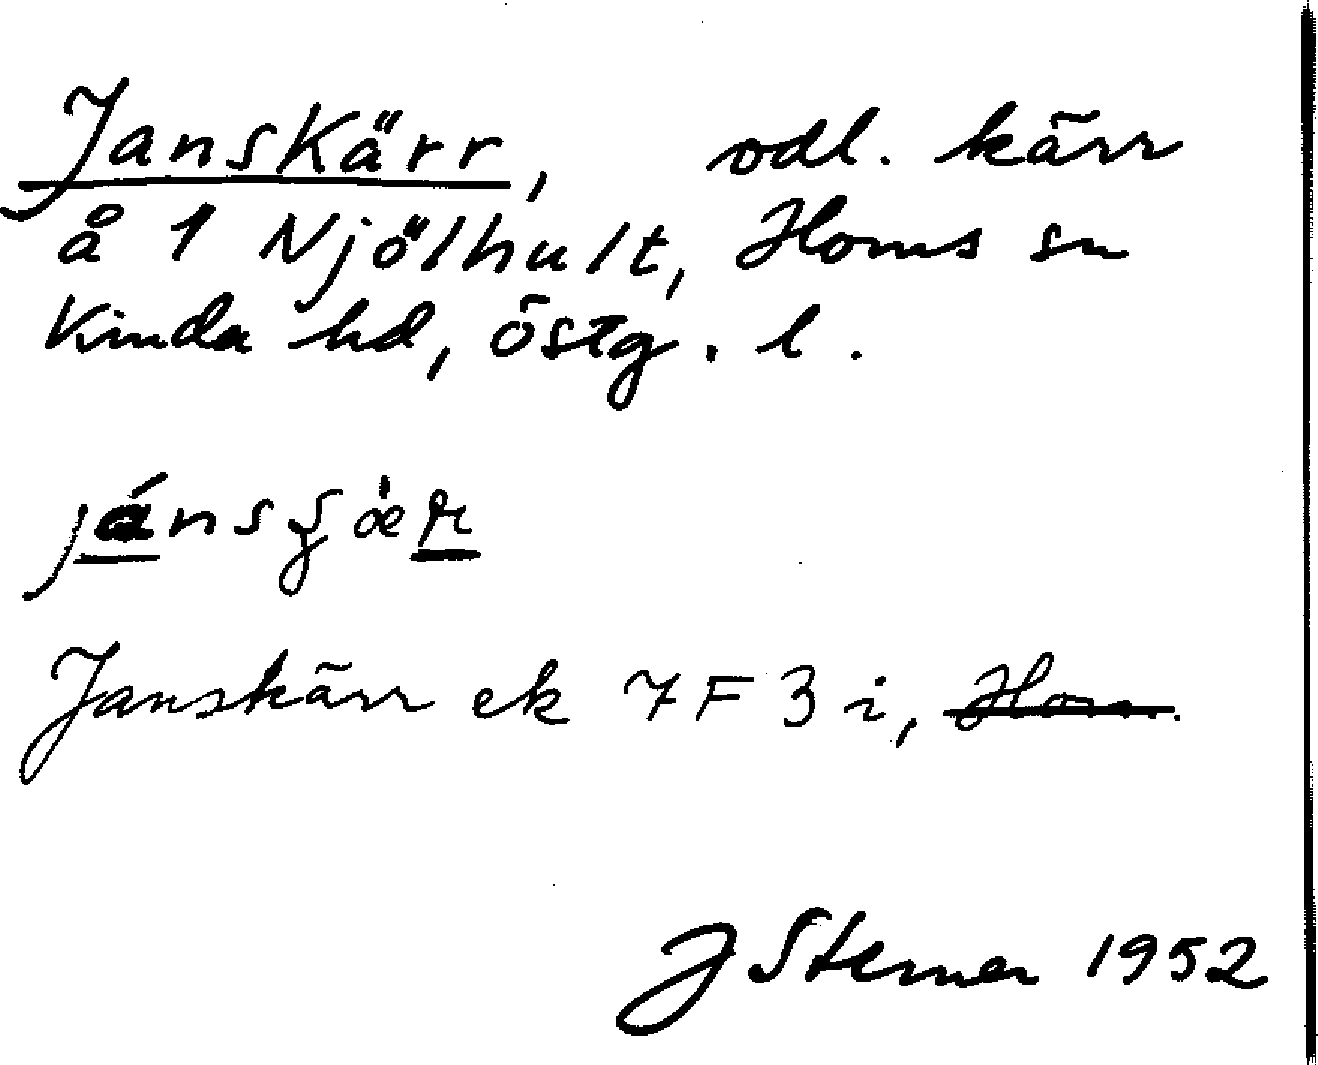 Janskärr, odl. kärr
å 1 Njölhult, Horns sn
Kinda hd, Östg. l.
Janskärr ek 7F3i, Horn.
J Sterner 1952